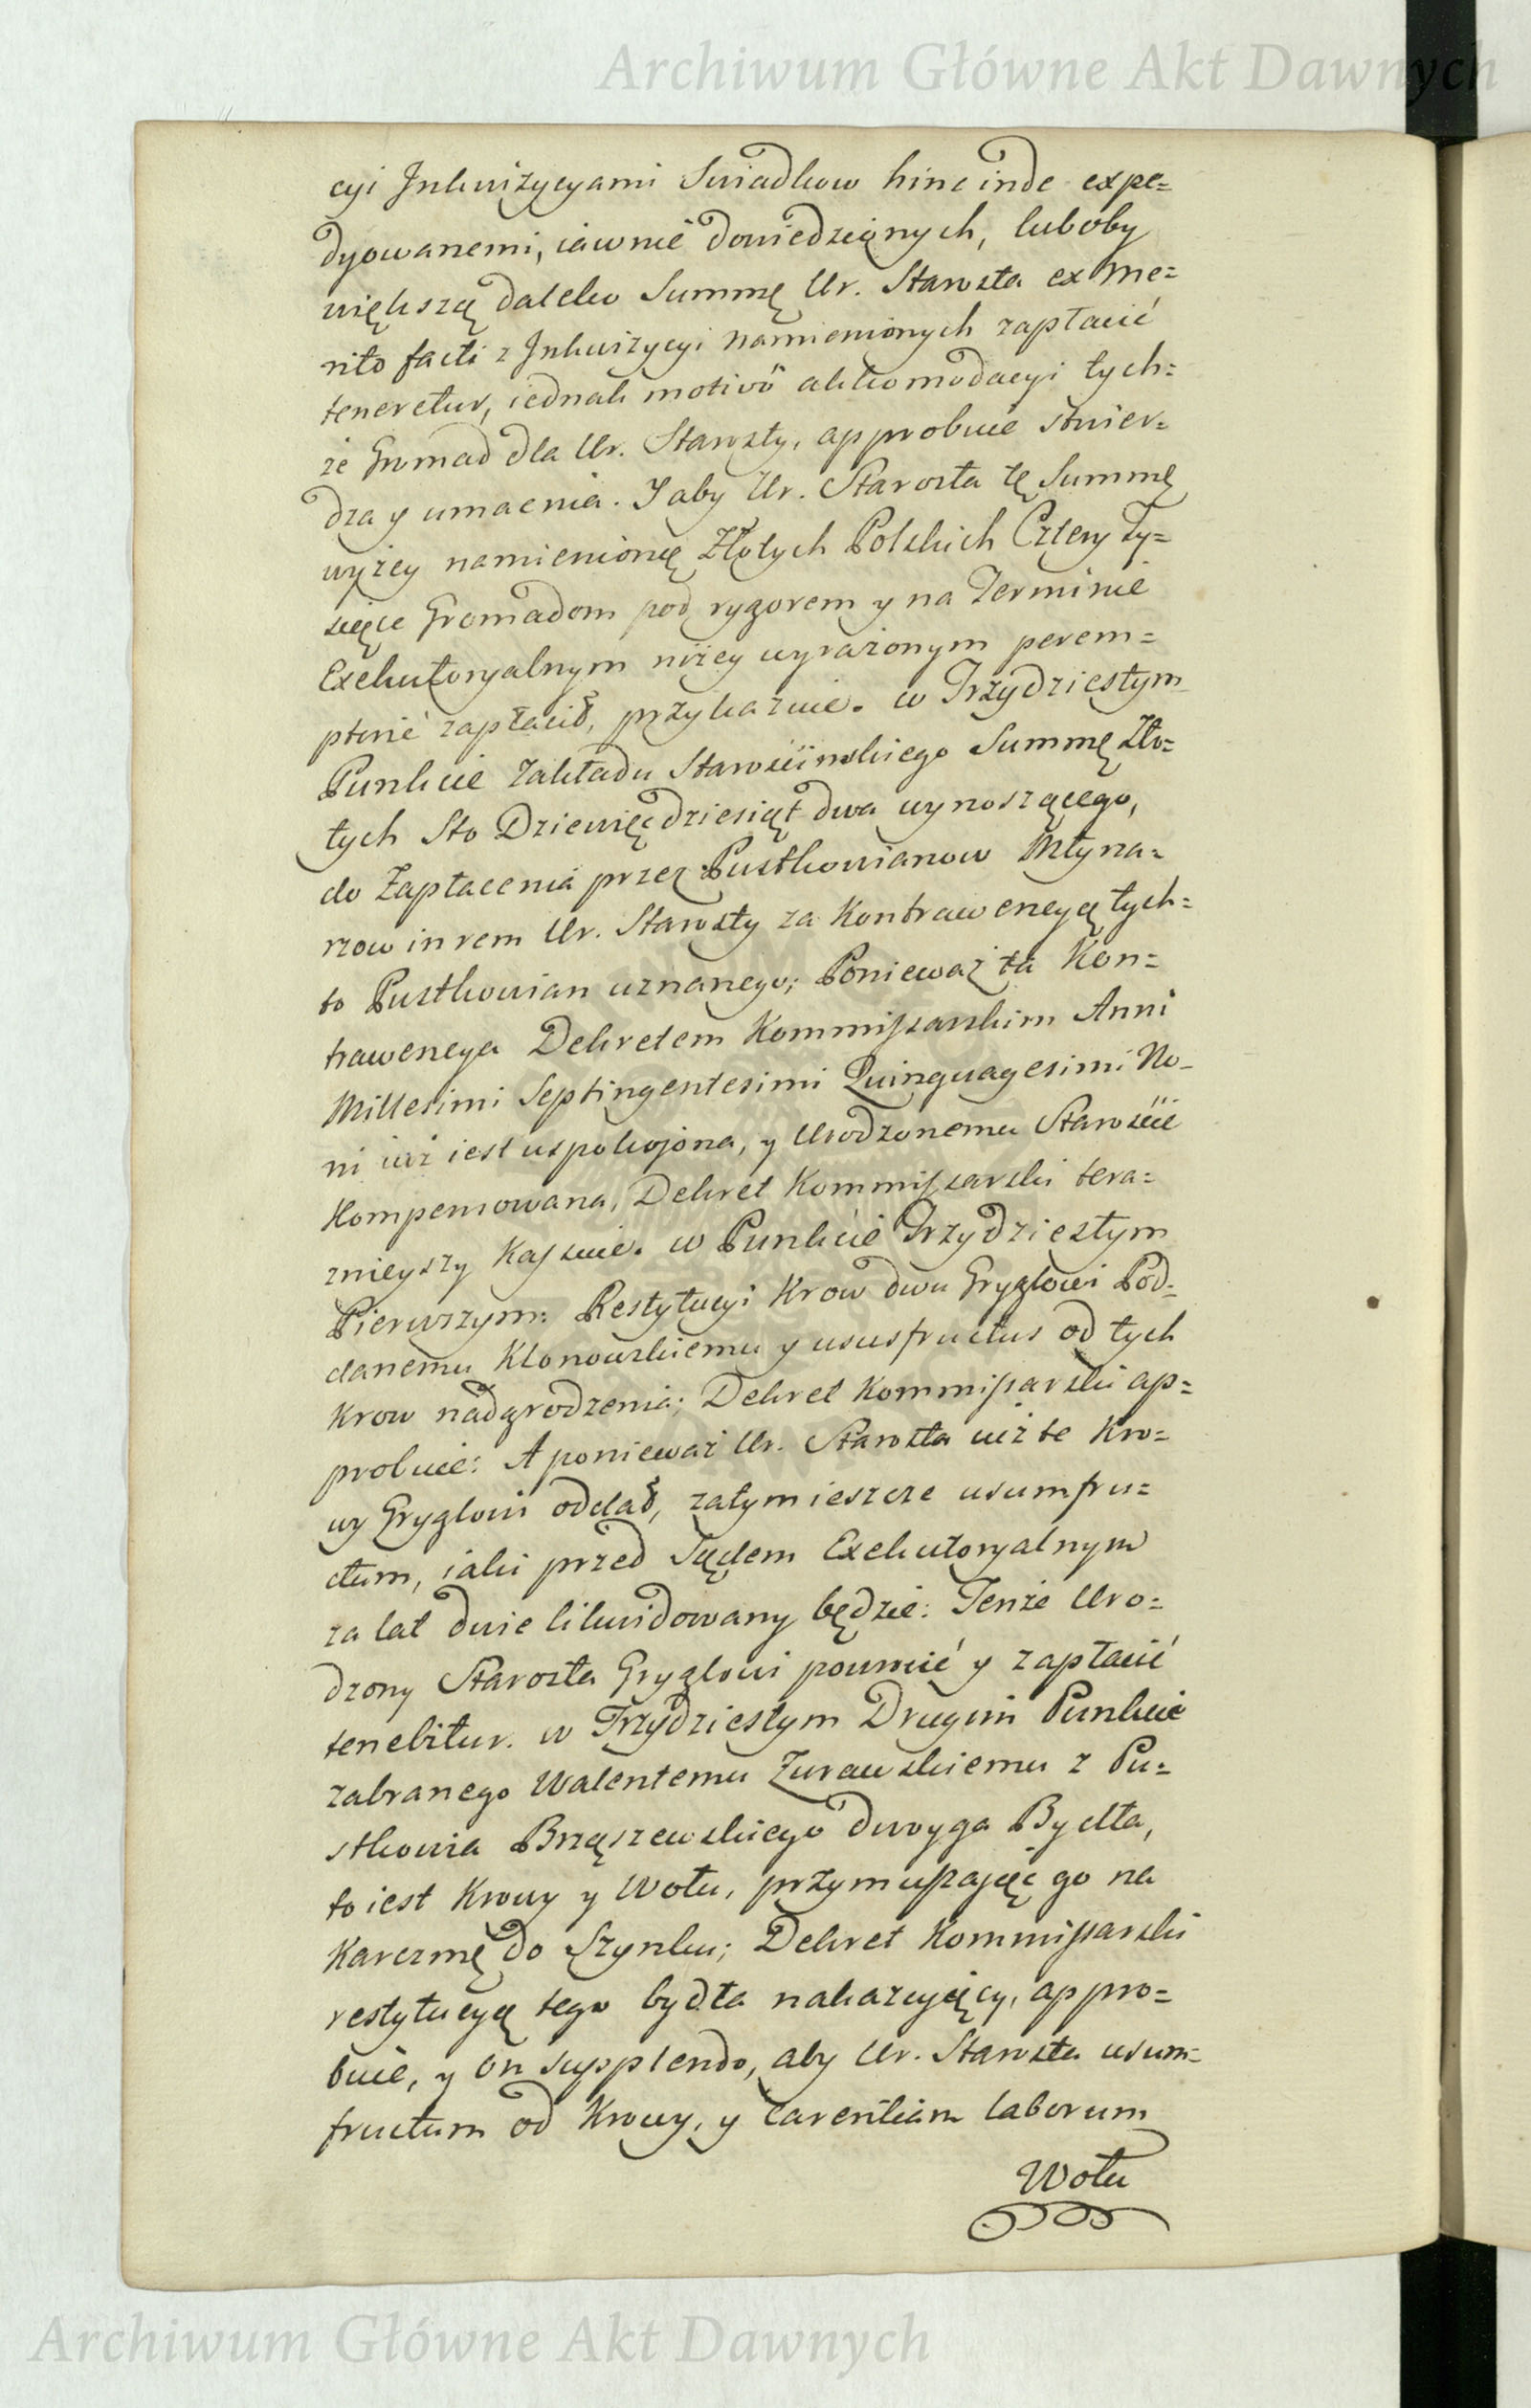 Archiwum Główne Akt Dawnych
cyi Jnkwizycyami Swiadkow hinc inde expe=
dyowanemi, iawnie dowiedzionych, luboby
większą daleko Summę Ur. Starosta ex me=
rito facti z Jnkwizycyi namienionych zapłacić
teneretur, iednak motivō akkomodacyi tych=
że Gromad dla Ur. Starosty, approbuie stwier=
dza y umacnia. Jaby Ur. Starosta tę Summę
wyżey namienioną Złotych Polskich Cztery Ty=
siące Gromadom pod rygorem y na Terminie
Exekutoryalnym niżey wyrażonym perem=
ptorie zapłacił, przykazuie. w Trzydziestym
Punkcie Zakładu Starościnskiego Summę Zło=
tych Sto Dziewięćdziesiąt dwa wynoszącego,
do Zapłacenia przez Pustkowianow Młyna=
rzow in rem Ur. Starosty za Kontrawencyą tych=
to Pustkowian uznanego; Ponieważ ta Kon=
trawencya Dekretem Kommissarskim Anni
Millesimi Septingentesimi Quinquagesimi No=
ni iuż iest uspokojona, y Urodzonemu Staroście
Kompensowana, Dekret Kommissarski tera=
znieyszy Kassuie. w Punkcie Trzydziestym
Pierwszym: Restytucyi Krow dwu Gryglowi Pod=
danemu Klonowskiemu y ususfructus od tych
Krow nadgrodzenia; Dekret Kommissarski ap=
probuie: A ponieważ Ur. Starosta iuż te Kro=
wy Gryglowi oddał, zatym ieszcze usumfru=
ctum, iaki przed Sądem Exekutoryalnym
za lat dwie likwidowany będzie: Tenże Uro=
dzony Starosta Gryglowi powrocić y zapłacić
tenebitur. w Trzydziestym Drugim Punkcie
zabranego Walentemu Zurawskiemu z Pu=
stkowia Brząszewskiego dwoyga Bydła,
to iest Krowy y Wołu, przymuszając go na
Karczmę do Szynku; Dekret Kommissarski
restytucyą tego bydła nakazuiący, appro=
buie, y on supplendo, aby Ur. Starosta usum=
fructum od Krowy, y carentiam laborum
Wołu
Archiwum Główne Akt Dawnych